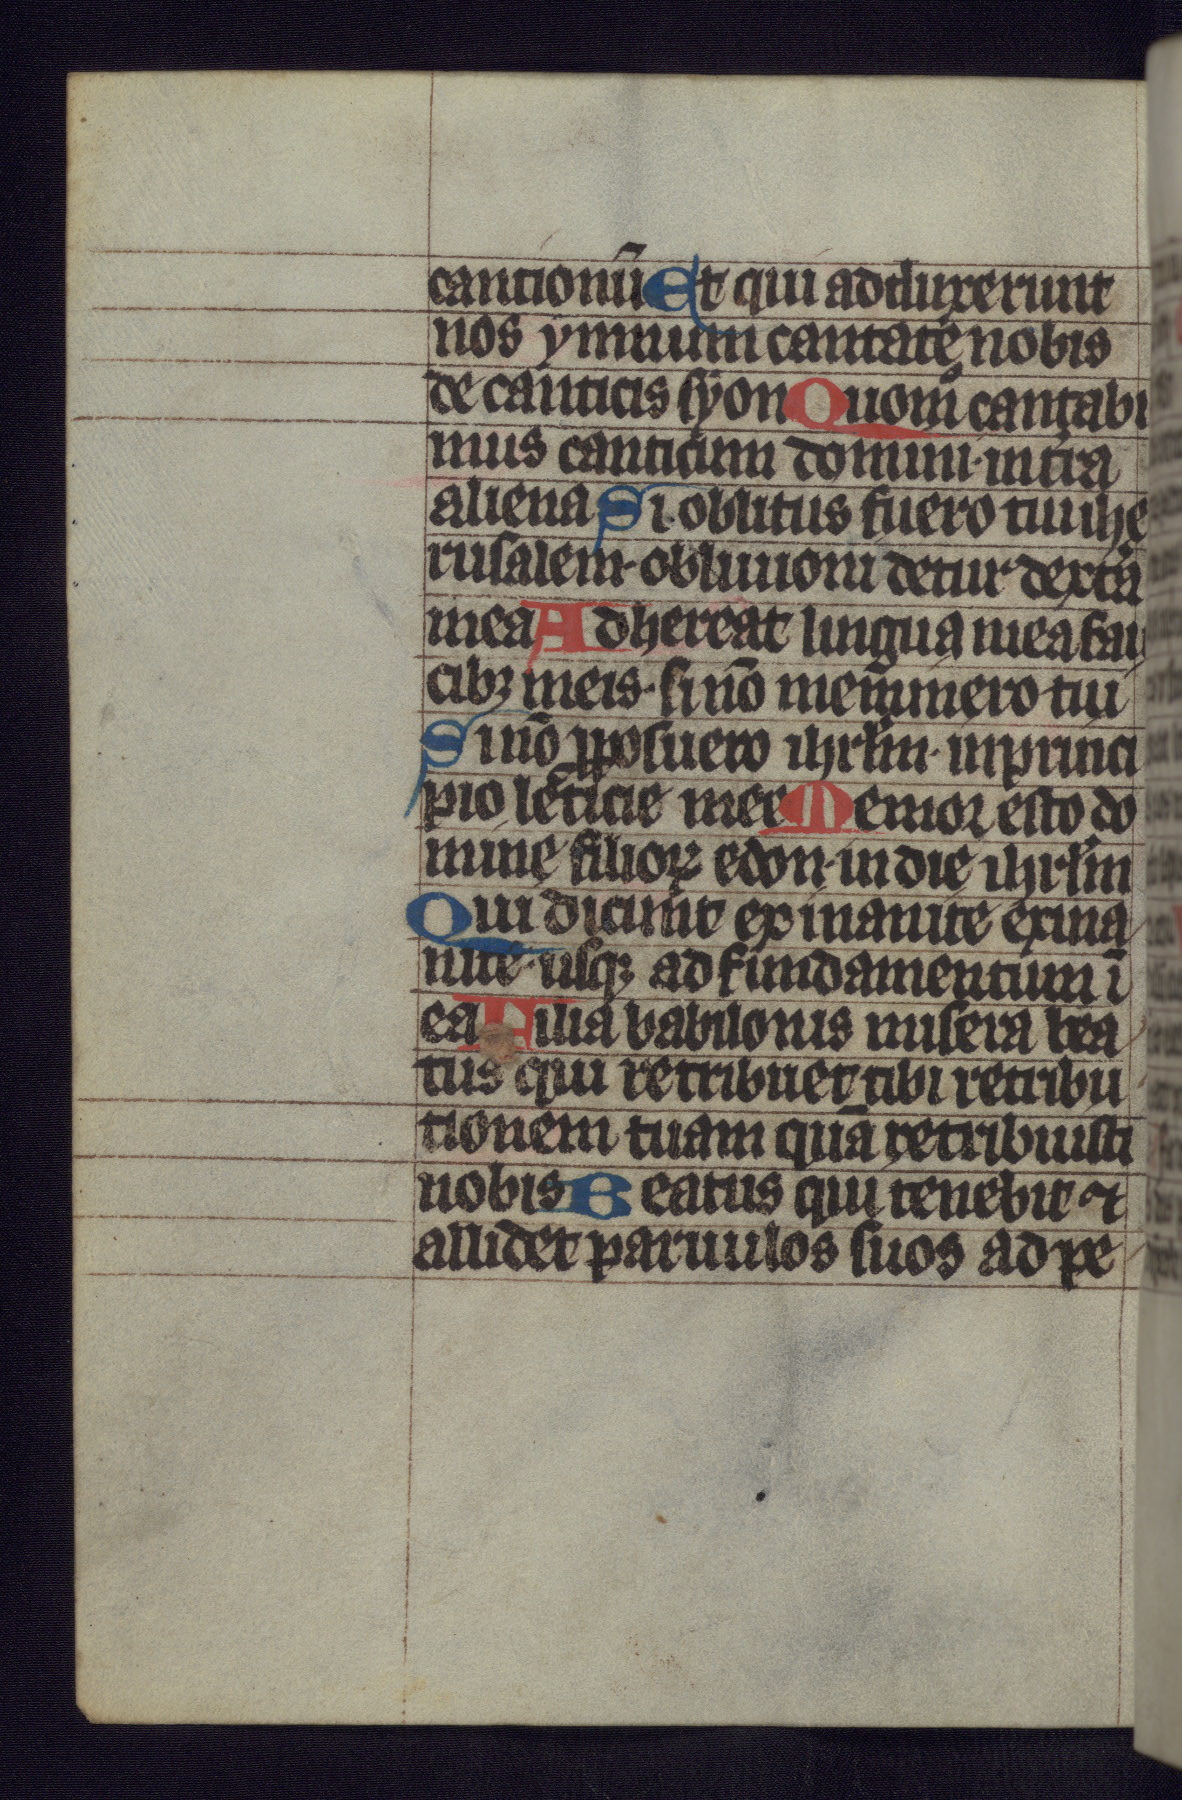 cantionū Et qui adduxerunt
nos ymnum cantate nobis
de canticis syon Quom̊ cantabi
mus canticum domini· in t̄ra
aliena Si oblitus fuero tui ihe
rusalem· obliuioni detur dext̄a
mea Adhereat lingua mea fau
cibꝫ meis· si nō mem̄inero tui
Si nō p̱posuero ihrl̄m· in princi
pio leticie mee Memoꝛ esto do
mine filioꝝ edon· in die ihrl̄m
Qui dicunt exinanite exina
nite· usqꝫ ad fundamentum ī
ea Filia babilonis misera bea
tus qui retribuet tibi retribu
tionem tuam quā retribuisti
nobis Beatus qui tenebit ⁊
allidet paruulos suos ad pe